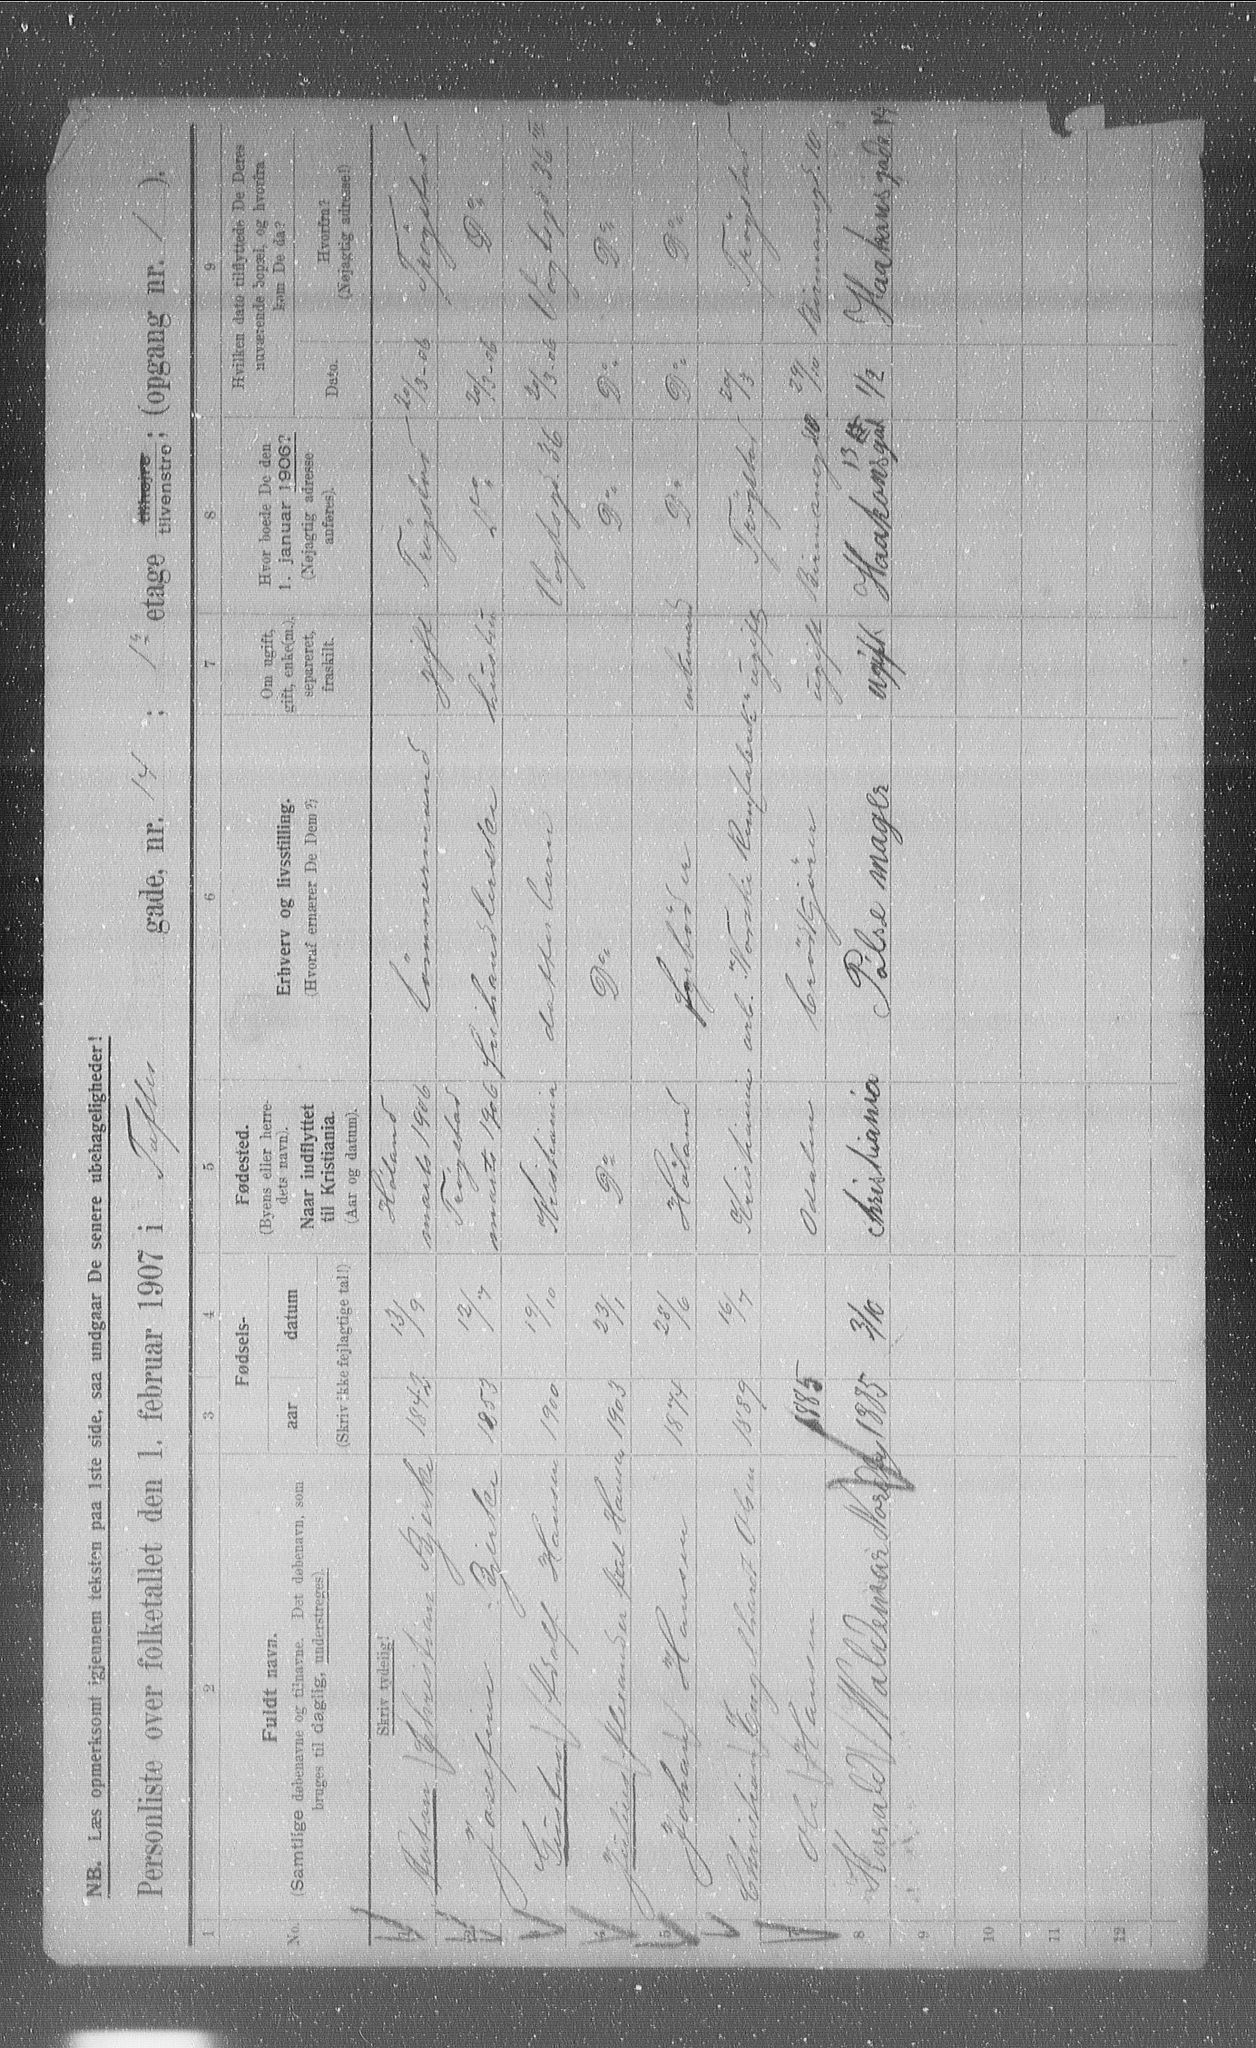 NB. Læs opmerksomt igjennem teksten paa 1ste side, saa undgaar De senere ubehageligheder!
Personliste over folketallet den 1. februar 1907 i Tøftes gade, nr. 14 ; 1ste etage tilhøjre tilvenstre; (opgang nr. 1 ).
1 2 3 4 5 6 7 8 9
No.
Fuldt navn.
(Samtlige døbenavne og tilnavne. Det døbenavn, som
bruges til daglig, understreges).
Skriv tydelig!
Fødsels-
aar datum
(Skriv ikke fejlagtige tal!)
Fødested.
(Byens eller herre-
dets navn).
Naar indflyttet
til Kristiania.
(Aar og datum).
Erhverv og livsstilling.
(Hvoraf ernærer De Dem?)
Om ugift,
gift, enke(m.),
separeret,
fraskilt.
Hvor boede De den
1. januar 1906?
(Nøjagtig adresse
anføres).
Hvilken dato tilflyttede De Deres
nuværende bopæl, og hvorfra
kom De da?
Dato.
Hvorfra?
(Nøjagtig adresse!)
1 Christian Bjerke 1843 13/9 Høland marts 1906 tömmermand gift Trögstad 20/3-06 Trögstad
2 Josefine Bjerke 1853 12/7 Trögstad marts 1906 hustru Do 20/3-06 Do
3 Gustav Adolf Hansen 1900 19/10 Kristiania datterbarn Vogtsgd 36 20/3-06 Vogtsgd. 36 III
4 Hansen 1903 23/1 Do Do Do Do Do
5 Johan Hansen 1874 28/6 Höland enkemand Do Do Do
6 Christian Engelhart Olsen 1889 16/7 Kristiania arb. Norske ugift Trögstad 20/3 Trögstad
7 Ole Hansen 1885 Odalen ugift 29/10
8 Harald Waldemar 1885 3/10 Christiania Pölse mager ugift Haakonsgad 13 1/2 Haakons gade 14
9
10
11
12